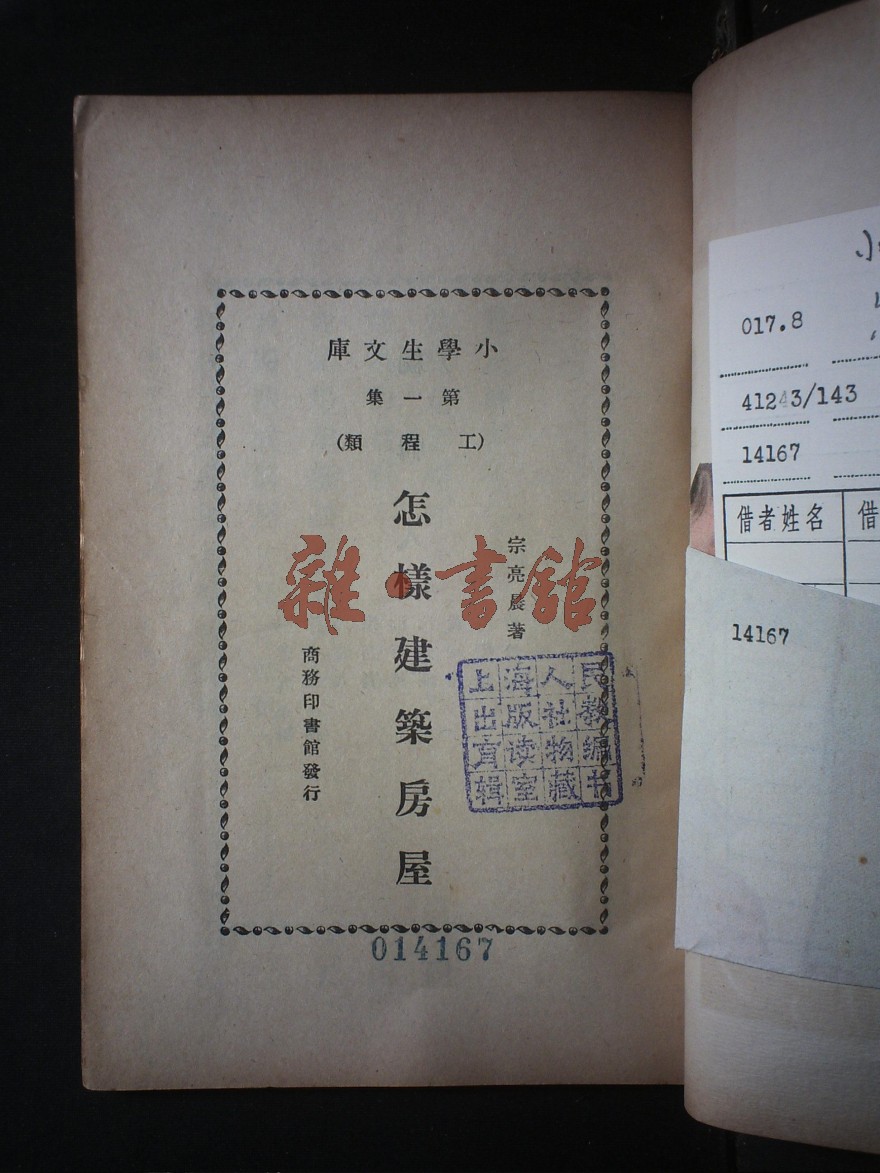 小學生文庫
第一集
(工程類)
宗亮晨著
怎樣建築房屋
商務印書館發行
雜·書館
上海人民
出版社教
育读物编
辑室藏书
014167
017.8
41243/143
14167
借者姓名
借
14167